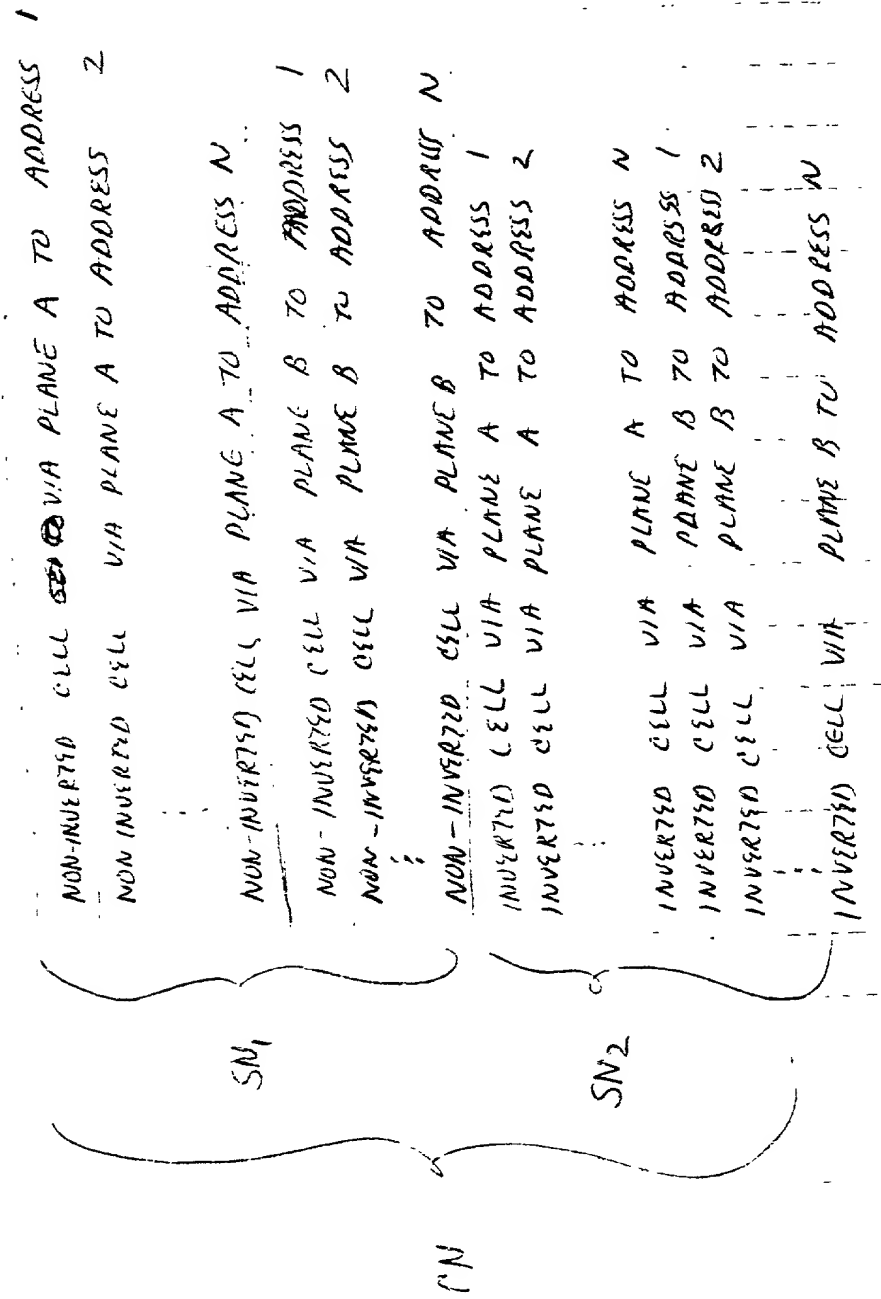 NON-INVERTED CELL VIA PLANE A TO ADDRESS 1
NON INVERTED CELL VIA PLANE A TO ADDRESS 2
:
NON-INVERTED CELL VIA PLANE A TO ADDRESS N
NON-INVERTED CELL VIA PLANE B TO ADDRESS 1
NON-INVERTED CELL VIA PLANE B TO ADDRESS 2
:
NON-INVERTED CELL VIA PLANE B TO ADDRESS N
SN1
INVERTED CELL VIA PLANE A TO ADDRESS 1
INVERTED CELL VIA PLANE A TO ADDRESS 2
:
INVERTED CELL VIA PLANE A TO ADDRESS N
INVERTED CELL VIA PLANE B TO ADDRESS 1
INVERTED CELL VIA PLANE B TO ADDRESS 2
:
INVERTED CELL VIA PLANE B TO ADDRESS N
SN2
CN